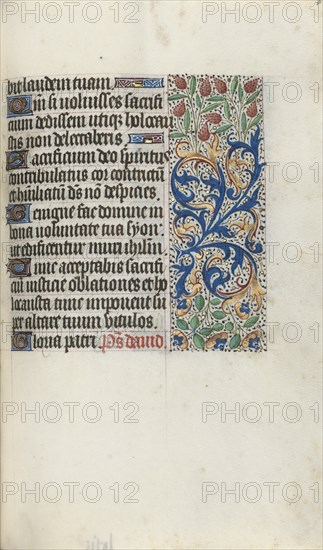 bit laudem tuam.
Qm si voluisses sacrifi
cium dedissem utiq; holocau
stis non delectaberis.
Sacrificium deo spiritus
contribulatus cor contritum
et humiliatum ds no despicies.
Benigne fac domine in
bona voluntate tua syon
ut edificentur muri ihrlm
Tunc acceptabis sacrifi
cium iusticie oblationes et ho
locausta tunc imponent su
per altare tuum vitulos.
Gloria patri. Ps david.
PHOTO12 PHOTO12 PHOTO12
PHOTO12 PHOTO12 PHOTO12
PHOTO12 PHOTO12 PHOTO12
PHOTO12 PHOTO12 PHOTO12